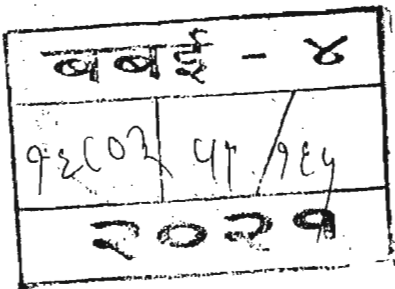 बबई - ४
१६८०३ ५१ / १६५
२०२१